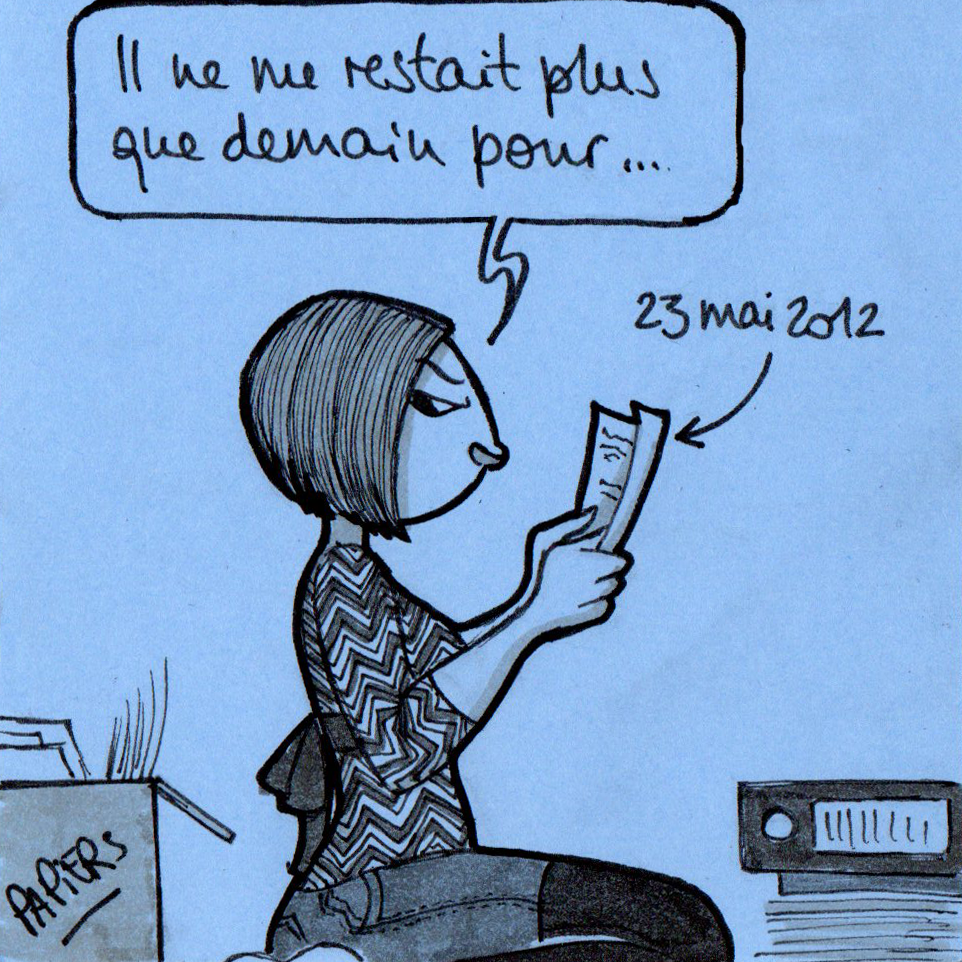 Il ne me restait plus
que demain pour...
23 mai 2012
PAPiERS